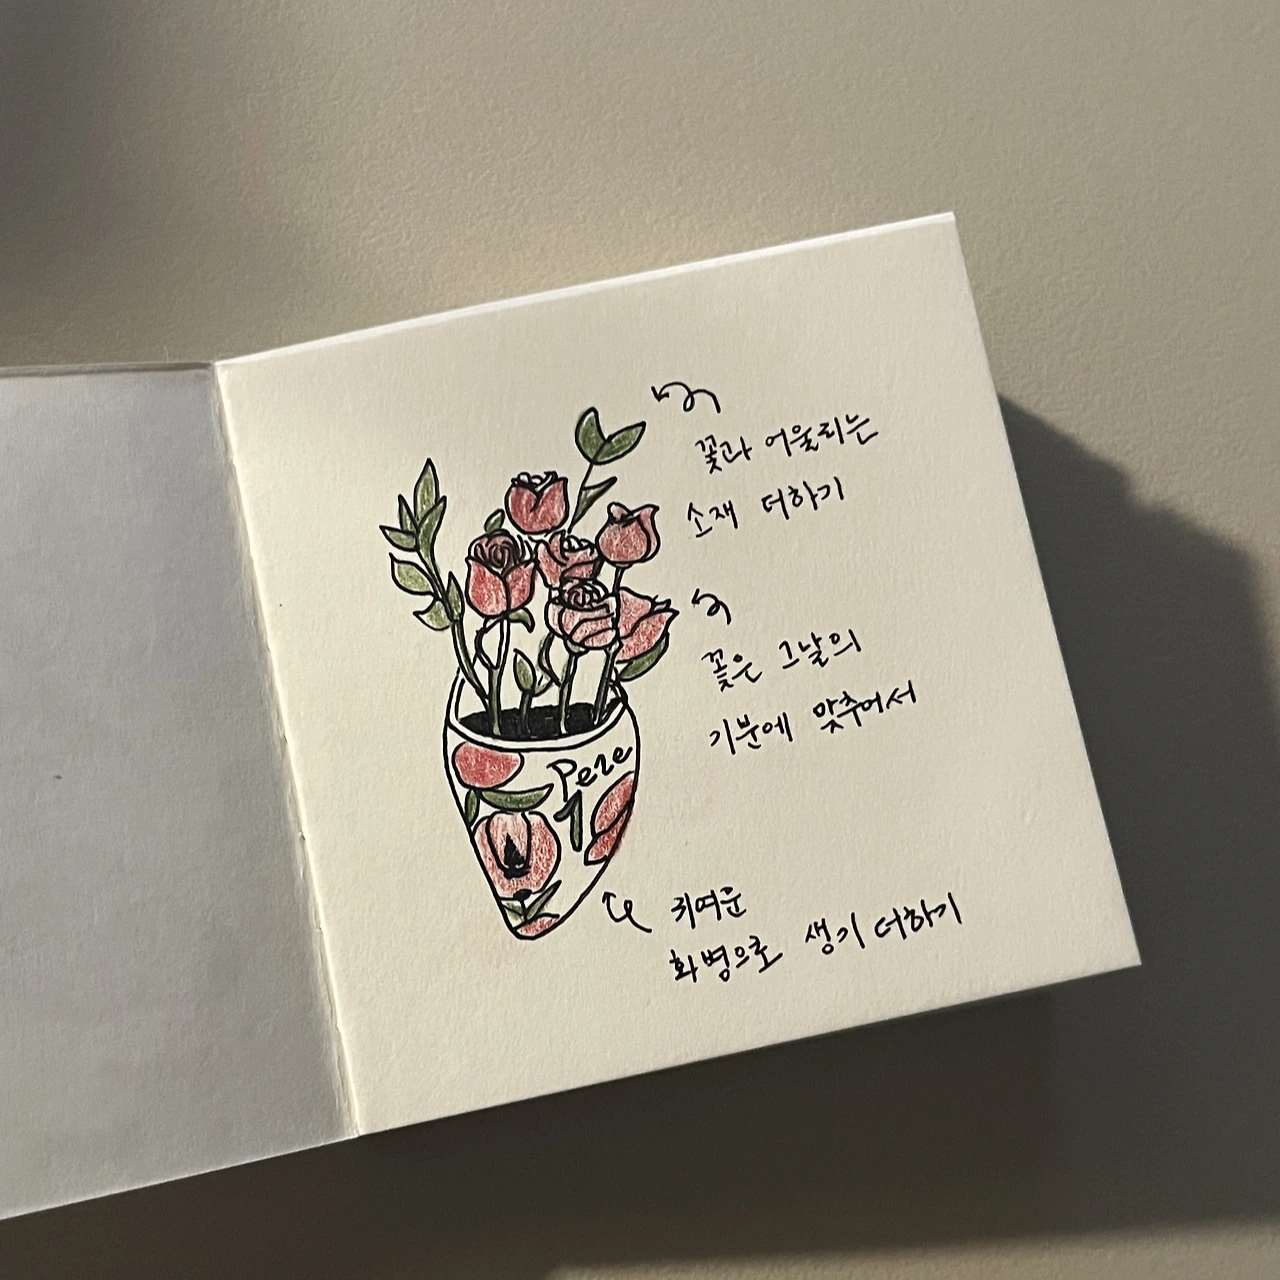 꽃과 어울리는
소재 더하기
꽃은 그날의
기분에 맞추어서
Peze
1
귀여운
화병으로 생기 더하기